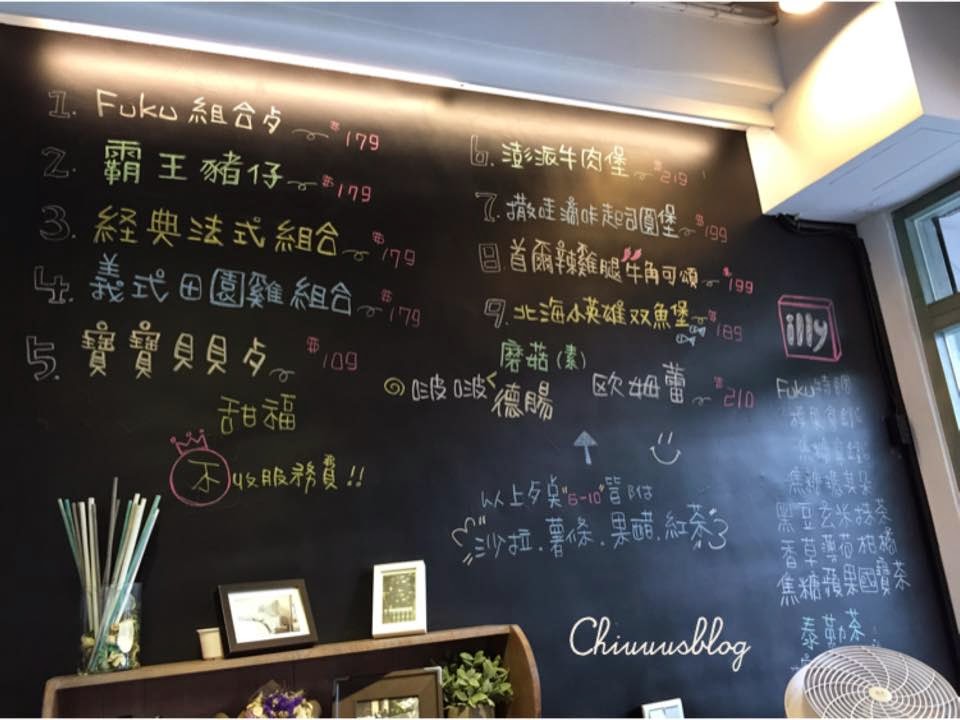 1. Fuku 組合歺 $179
2. 霸王豬仔 $179
3. 経典法式組合 $179
4. 義式田園雞組合 $179
5. 寶寶貝貝歺 $109
甜福
不收服務費!!
6. 澎派牛肉堡 $219
7. 撒哇滴咔起司圓堡 $199
8. 首爾辣雞腿牛角可頌 $199
9. 北海小英雄双魚堡 $189
啵啵< 磨菇(素) 德腸 欧姆蕾 $210
以上歺桌"6-10"皆附
沙拉.薯條.果醋.紅茶
illy
Fuku
黑豆玄米抹茶
香草薄荷柑橘
焦糖蘋果國寶茶
泰勒茶
Chiuuusblog